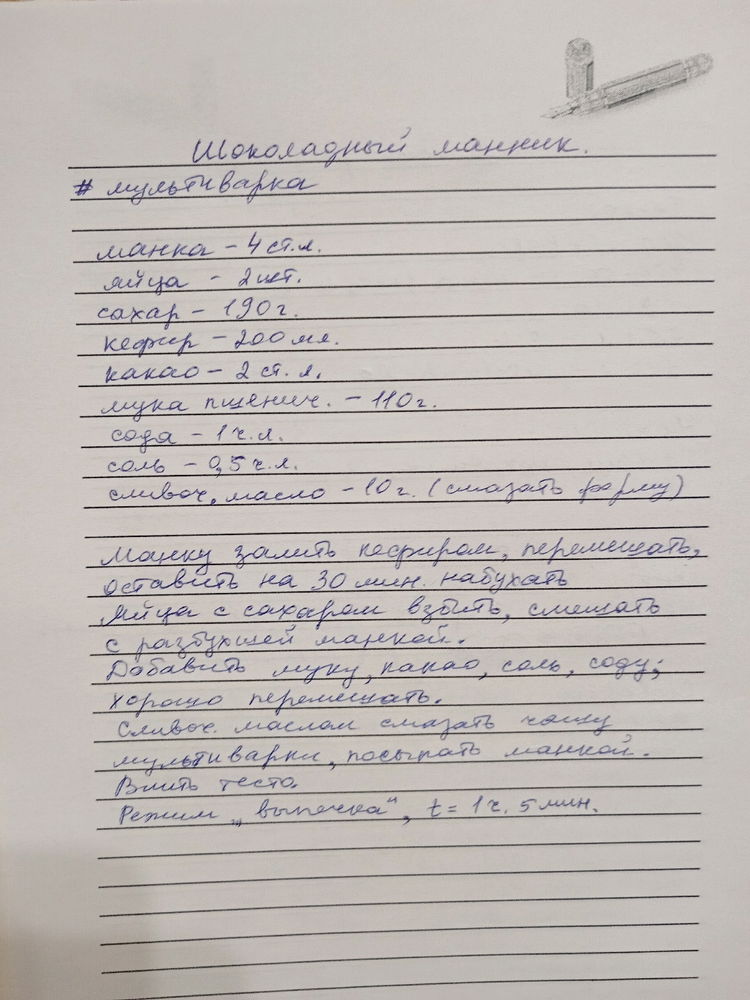 Шоколадный манник.
# мультиварка
манка - 4 ст.л.
яйца - 2 шт.
сахар - 190 г.
кефир - 200 мл.
какао - 2 ст.л.
мука пшенич. - 110 г.
сода - 1 ч.л.
соль - 0,5 ч.л.
сливоч. масло - 10 г. (смазать форму)
Манку залить кефиром, перемешать,
оставить на 30 мин. набухать
Яйца с сахаром взбить, смешать
с разбухшей манкой.
Добавить муку, какао, соль, соду;
хорошо перемешать.
Сливоч. маслом смазать чашу
мультиварки, посыпать манкой.
Влить тесто.
Режим „выпечка“, t = 1 ч. 5 мин.